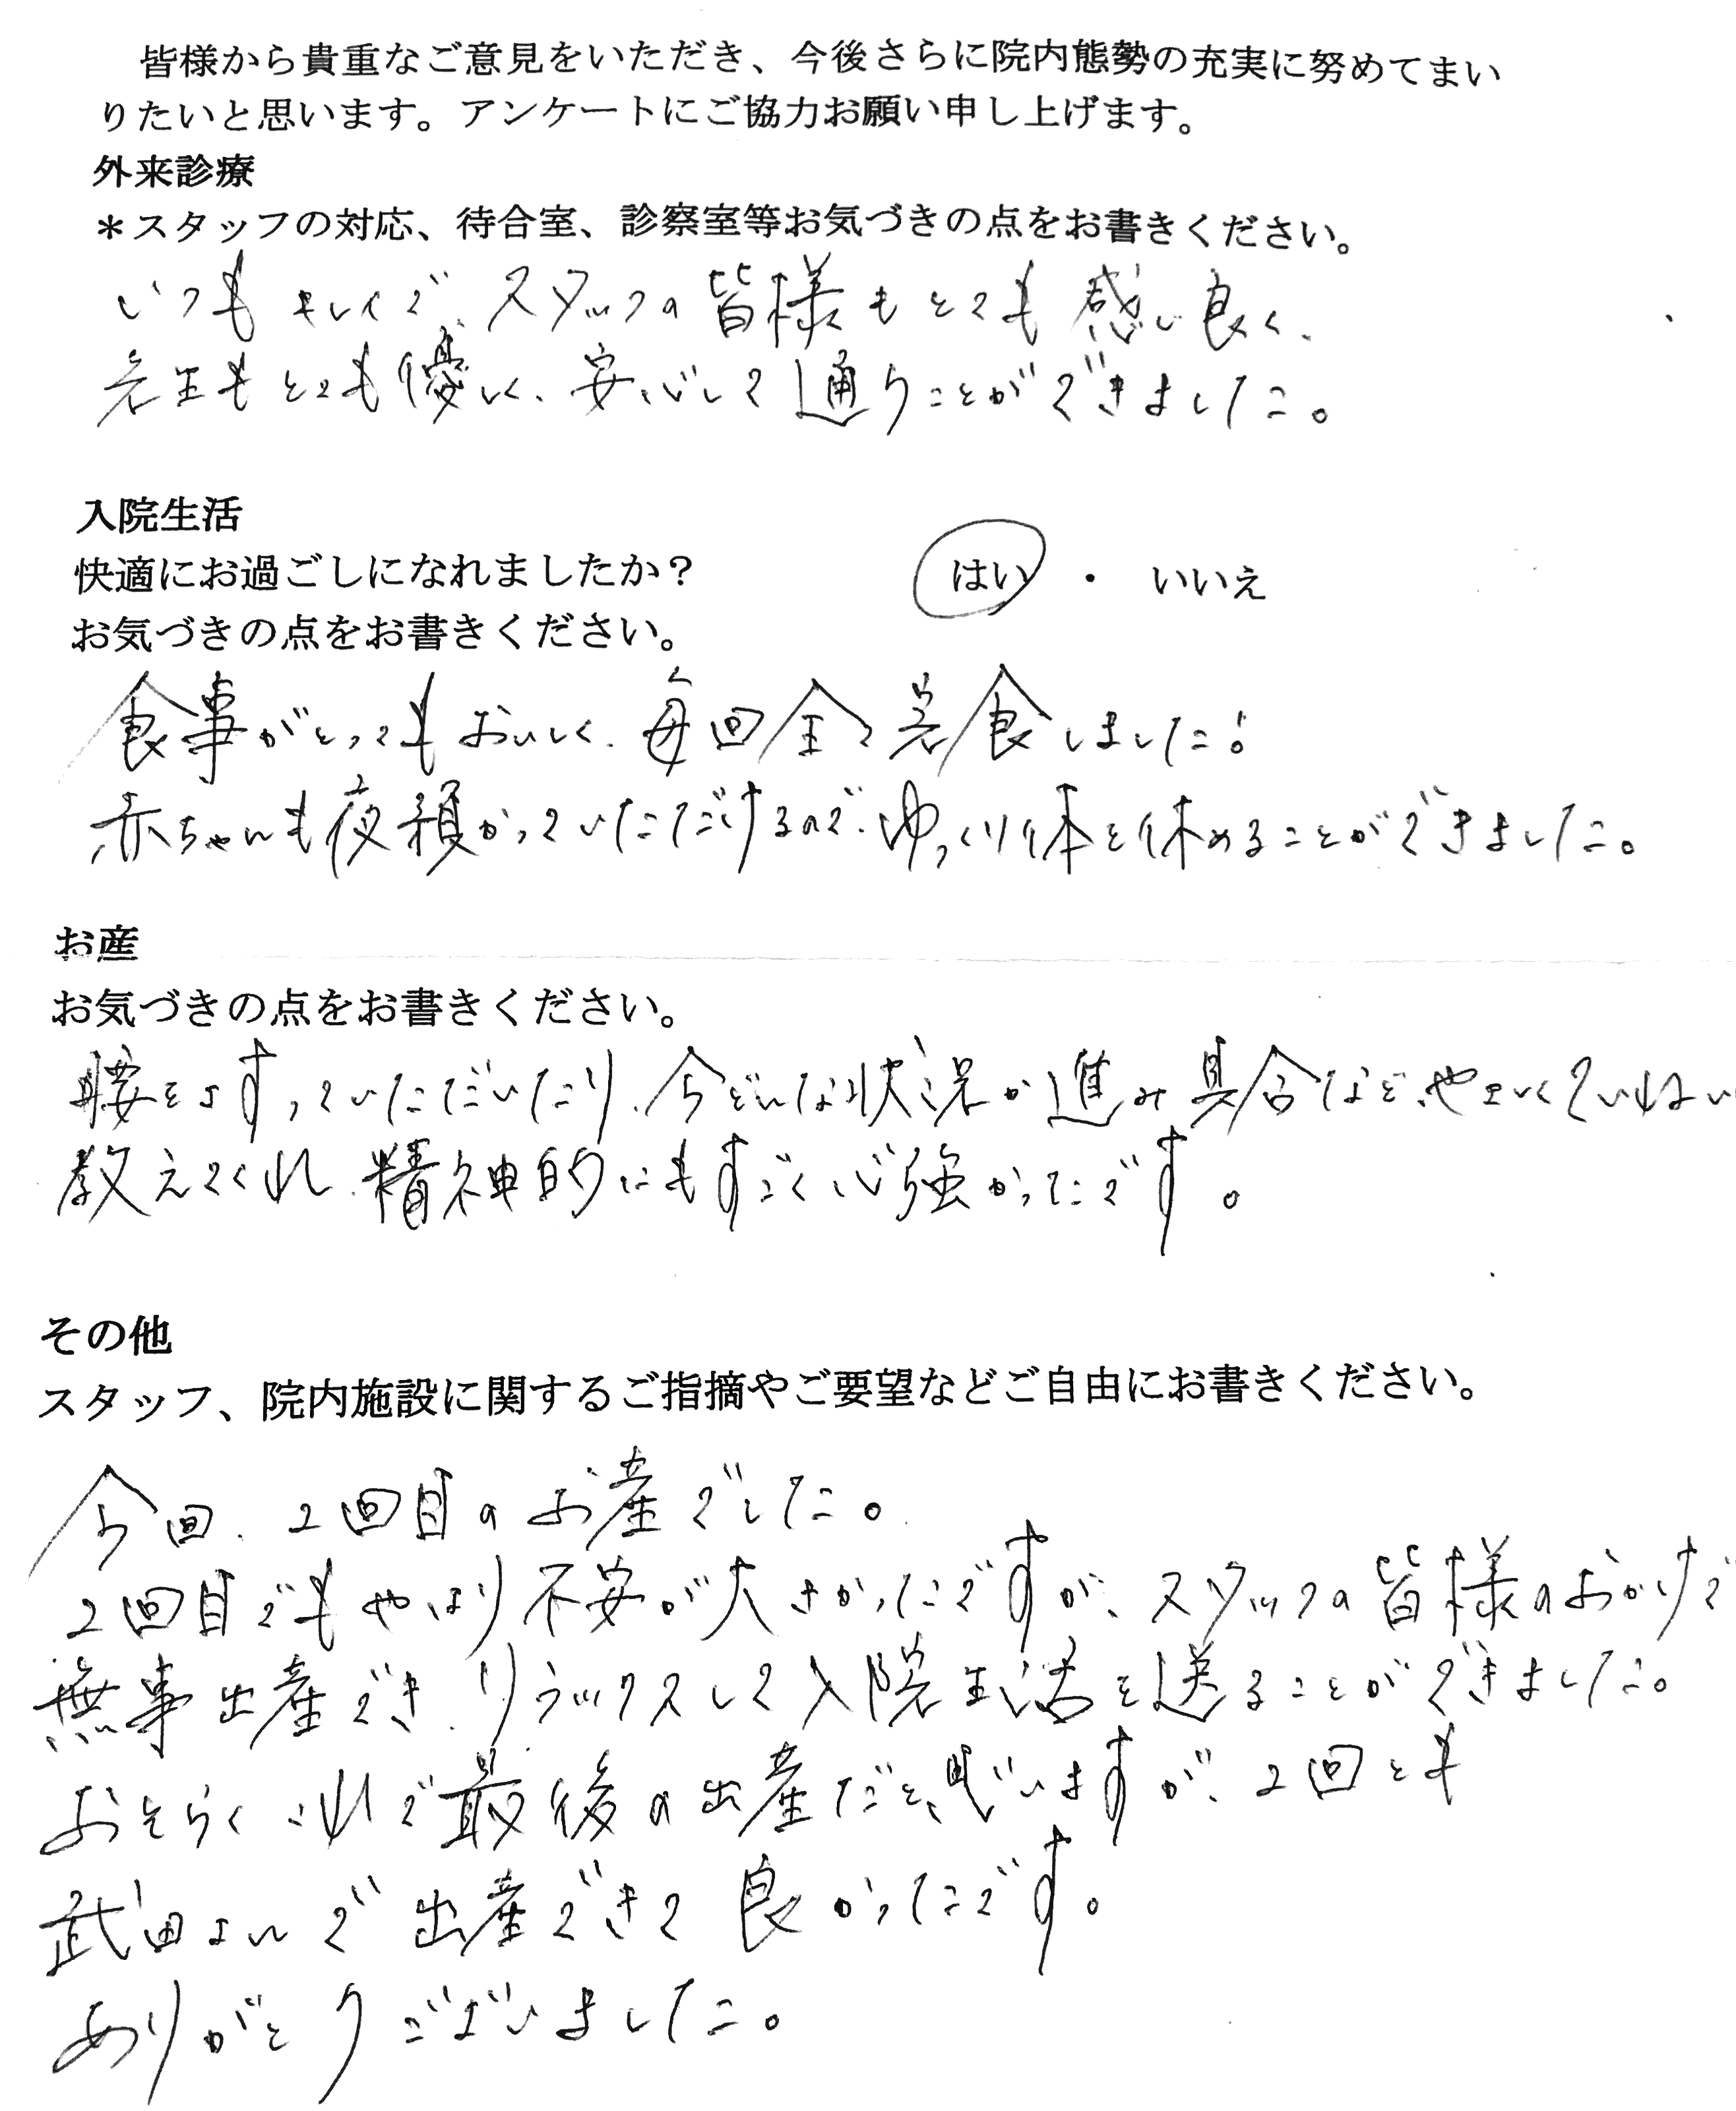 皆様から貴重なご意見をいただき、今後さらに院内態勢の充実に努めてまい
りたいと思います。アンケートにご協力お願い申し上げます。
外来診療
＊スタッフの対応、待合室、診察室等お気づきの点をお書きください。
いつもキレイで、スタッフの皆様もとても感じ良く、
先生もとても優しく、安心して通うことができました。
入院生活
快適にお過ごしになれましたか？ はい ・ いいえ
お気づきの点をお書きください。
食事がとってもおいしく、毎回全て完食しました！
赤ちゃんも夜預かっていただけるので、ゆっくり体を休めることができました。
お産
お気づきの点をお書きください。
腰をさすっていただいたり、今どんな状況か進み具合など、やさしくていねい
教えてくれ、精神的にもすごく心強かったです。
その他
スタッフ、院内施設に関するご指摘やご要望などご自由にお書きください。
今回、2回目のお産でした。
2回目でもやはり不安が大きかったですが、スタッフの皆様のおかげで
無事出産でき、リラックスして入院生活を送ることができました。
おそらくこれで最後の出産だと思いますが、2回とも
武田さんで出産できて良かったです。
ありがとうございました。